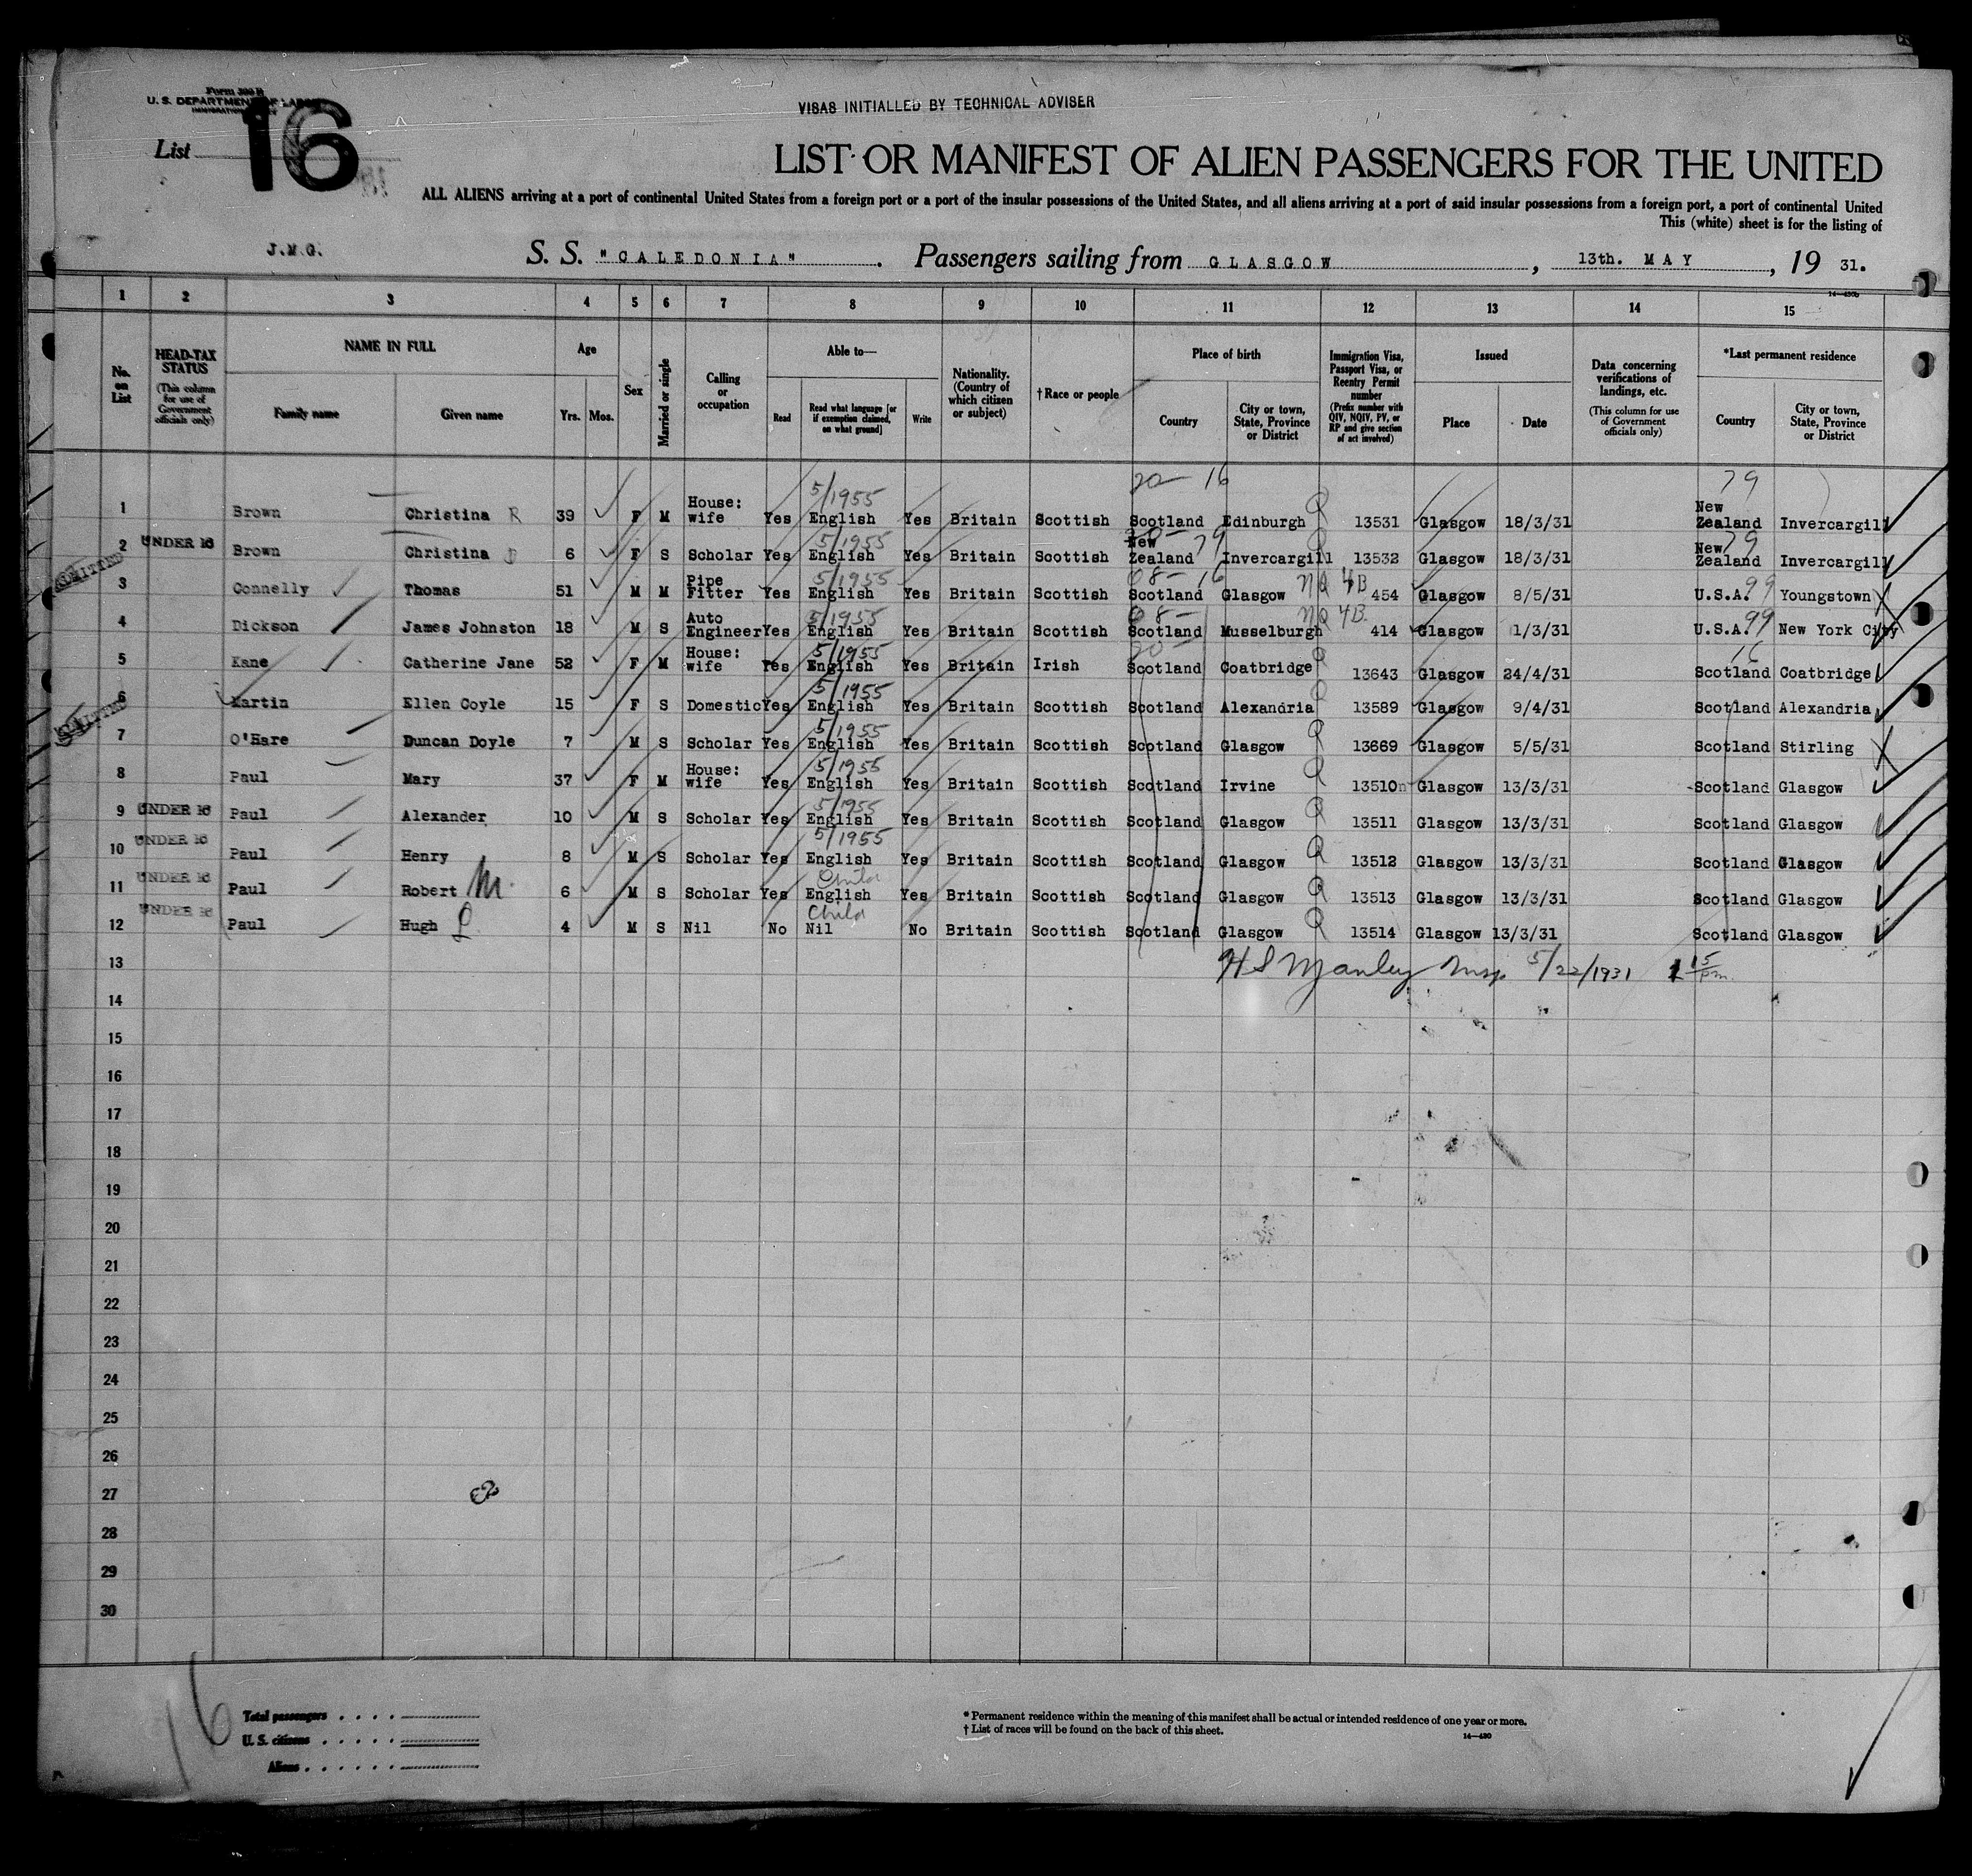 Form 500 B
U. S. DEPARTMENT OF LABOR
VISAS INITIALLED BY TECHNICAL ADVISER
List 16
LIST OR MANIFEST OF ALIEN PASSENGERS FOR THE UNITED
ALL ALIENS arriving at a port of continental United States from a foreign port or a port of the insular possessions of the United States, and all aliens arriving at a port of said insular possessions from a foreign port, a port of continental United
This (white) sheet is for the listing of
J.M.G. S. S. "CALEDONIA" . Passengers sailing from GLASGOW , 13th. MAY , 19 31.
1 2 3 4 5 6 7 8 9 10 11 12 13 14 15
No. on List HEAD-TAX STATUS (This column for use of Government officials only) NAME IN FULL Family name Given name Age Yrs. Mos. Sex Married or single Calling or occupation Able to— Read Read what language [or if exemption claimed, on what ground] Write Nationality. (Country of which citizen or subject) †Race or people Place of birth Country City or town, State, Province or District Immigration Visa, Passport Visa, or Reentry Permit number (Prefix number with QIV, NQIV, PV, or RP and give section of act involved) Issued Place Date Data concerning verifications of landings, etc. (This column for use of Government officials only) *Last permanent residence Country City or town, State, Province or District
5/1955 20 - 16 79
1 Brown Christina R 39 F M House: wife Yes English Yes Britain Scottish Scotland Edinburgh Q 13531 Glasgow 18/3/31 New Zealand Invercargill
5/1955 79 79
2 UNDER 16 Brown Christina 6 F S Scholar Yes English Yes Britain Scottish New Zealand Invercargill 13532 Glasgow 18/3/31 New Zealand Invercargill
ADMITTED
5/1955 08 - 16 NQ 4B 99
3 Connelly Thomas 51 M M Pipe Fitter Yes English Yes Britain Scottish Scotland Glasgow 454 Glasgow 8/5/31 U.S.A. Youngstown
5/1955 08 - NQ 4B 99
4 Dickson James Johnston 18 M S Auto Engineer Yes English Yes Britain Scottish Scotland Musselburgh 414 Glasgow 1/3/31 U.S.A. New York City
5/1955 20 - 16
5 Kane Catherine Jane 52 F M House: wife Yes English Yes Britain Irish Scotland Coatbridge Q 13643 Glasgow 24/4/31 Scotland Coatbridge
5/1955
6 Martin Ellen Coyle 15 F S Domestic Yes English Yes Britain Scottish Scotland Alexandria Q 13589 Glasgow 9/4/31 Scotland Alexandria
ADMITTED
5/1955
7 O'Hare Duncan Doyle 7 M S Scholar Yes English Yes Britain Scottish Scotland Glasgow Q 13669 Glasgow 5/5/31 Scotland Stirling
5/1955
8 Paul Mary 37 F M House: wife Yes English Yes Britain Scottish Scotland Irvine Q 13510 Glasgow 13/3/31 Scotland Glasgow
5/1955
9 UNDER 16 Paul Alexander 10 M S Scholar Yes English Yes Britain Scottish Scotland Glasgow Q 13511 Glasgow 13/3/31 Scotland Glasgow
5/1955
10 UNDER 16 Paul Henry 8 M S Scholar Yes English Yes Britain Scottish Scotland Glasgow Q 13512 Glasgow 13/3/31 Scotland Glasgow
Child
11 UNDER 16 Paul Robert M. 6 M S Scholar Yes English Yes Britain Scottish Scotland Glasgow Q 13513 Glasgow 13/3/31 Scotland Glasgow
Child
12 UNDER 16 Paul Hugh 4 M S Nil No Nil No Britain Scottish Scotland Glasgow Q 13514 Glasgow 13/3/31 Scotland Glasgow
13 H S Manley Insp. 5/22/1931 1 15 pm.
14
15
16
17
18
19
20
21
22
23
24
25
26
27
28
29
30
16
Total passengers
U. S. citizens
Aliens
* Permanent residence within the meaning of this manifest shall be actual or intended residence of one year or more.
† List of races will be found on the back of this sheet.
14—430